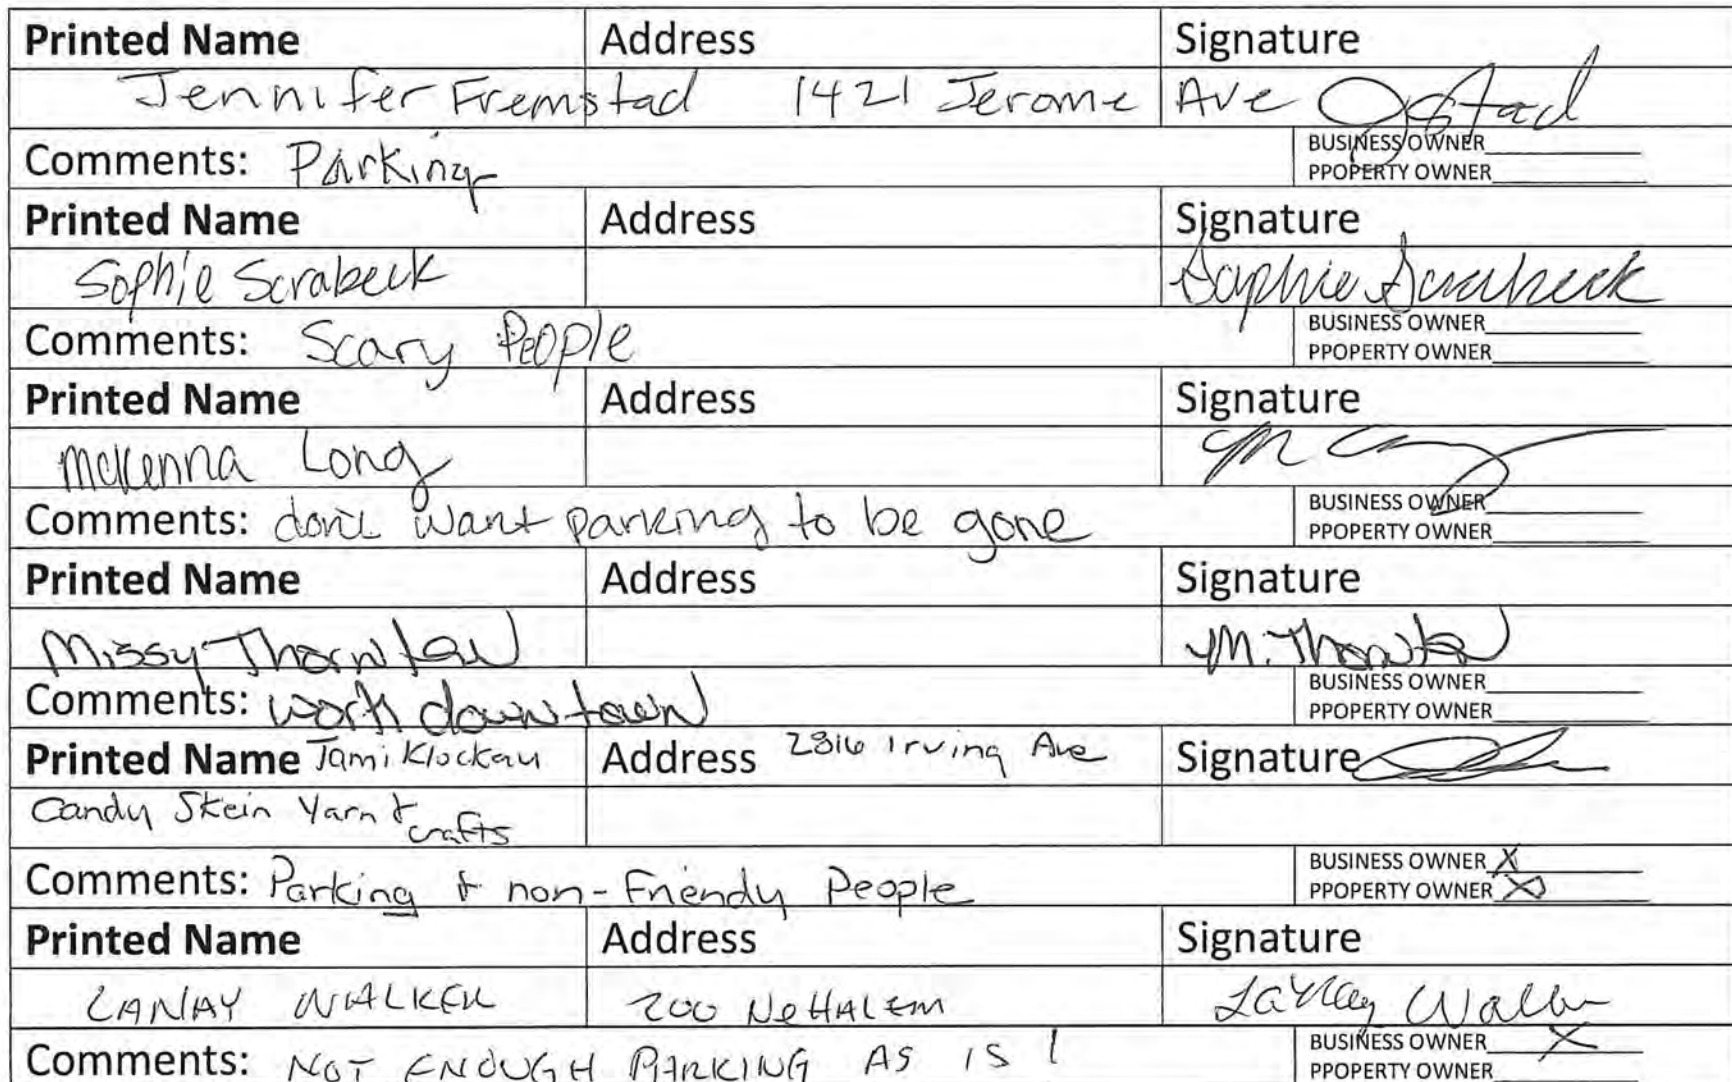 Printed Name Address Signature
Jennifer Fremstad 1421 Jerome Ave
Comments: Parking BUSINESS OWNER
PPOPERTY OWNER
Printed Name Address Signature
Sophie Scrabeck Sophie Scrabeck
Comments: Scary People BUSINESS OWNER
PPOPERTY OWNER
Printed Name Address Signature
McKenna Long
Comments: don't want parking to be gone BUSINESS OWNER
PPOPERTY OWNER
Printed Name Address Signature
Missy Thornton M. Thornton
Comments: work downtown BUSINESS OWNER
PPOPERTY OWNER
Printed Name Tami Klockau Address 2816 Irving Ave Signature
Candy Skein Yarn & crafts
Comments: Parking & non-Friendy People BUSINESS OWNER X
PPOPERTY OWNER X
Printed Name Address Signature
LANAY WALKER 200 NeHALEM LaNay Walker
Comments: NOT ENOUGH PARKING AS IS ! BUSINESS OWNER X
PPOPERTY OWNER